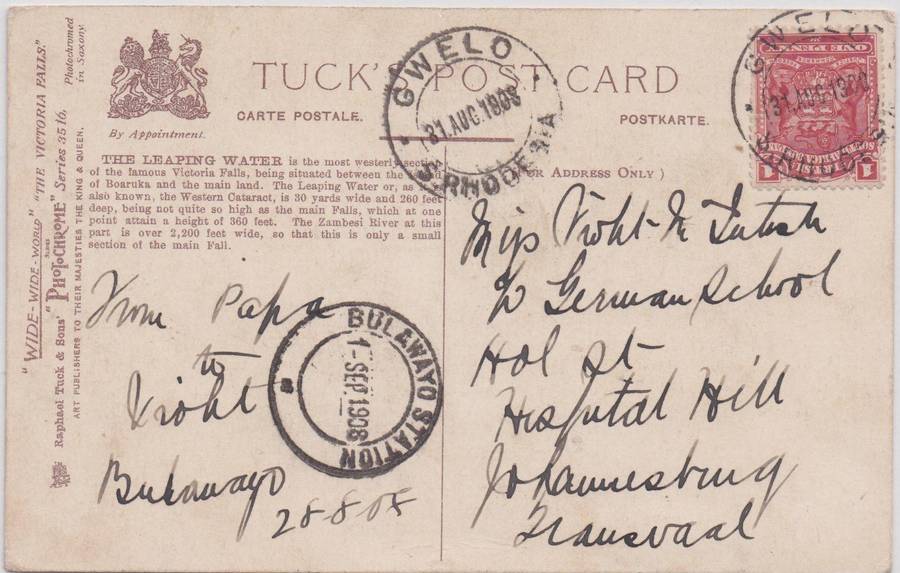 "WIDE-WIDE-WORLD" "THE VICTORIA FALLS."
Raphael Tuck & Sons' "PHOTOCHROME" Series 3516.
ART PUBLISHERS TO THEIR MAJESTIES THE KING & QUEEN.
Photochromed
in Saxony.
By Appointment.
TUCK'S POST CARD
CARTE POSTALE.
POSTKARTE.
THE LEAPING WATER is the most westerly section
of the famous Victoria Falls, being situated between the
of Boaruka and the main land. The Leaping Water or, as
also known, the Western Cataract, is 30 yards wide and 260 feet
deep, being not quite so high as the main Falls, which at one
point attain a height of 360 feet. The Zambesi River at this
part is over 2,200 feet wide, so that this is only a small
section of the main Fall.
(For Address Only)
GWELO
31 AUG 1908
S. RHODESIA
GWELO
31 AUG 1908
ONE PENNY
SOUTH AFRICA COMPANY
1 1
From Papa
to
Violet
Bulawayo
28-8-08
BULAWAYO STATION
1-SEP 1908
Miss Violet
German School
Hol St
Hospital Hill
Johannesburg
Transvaal